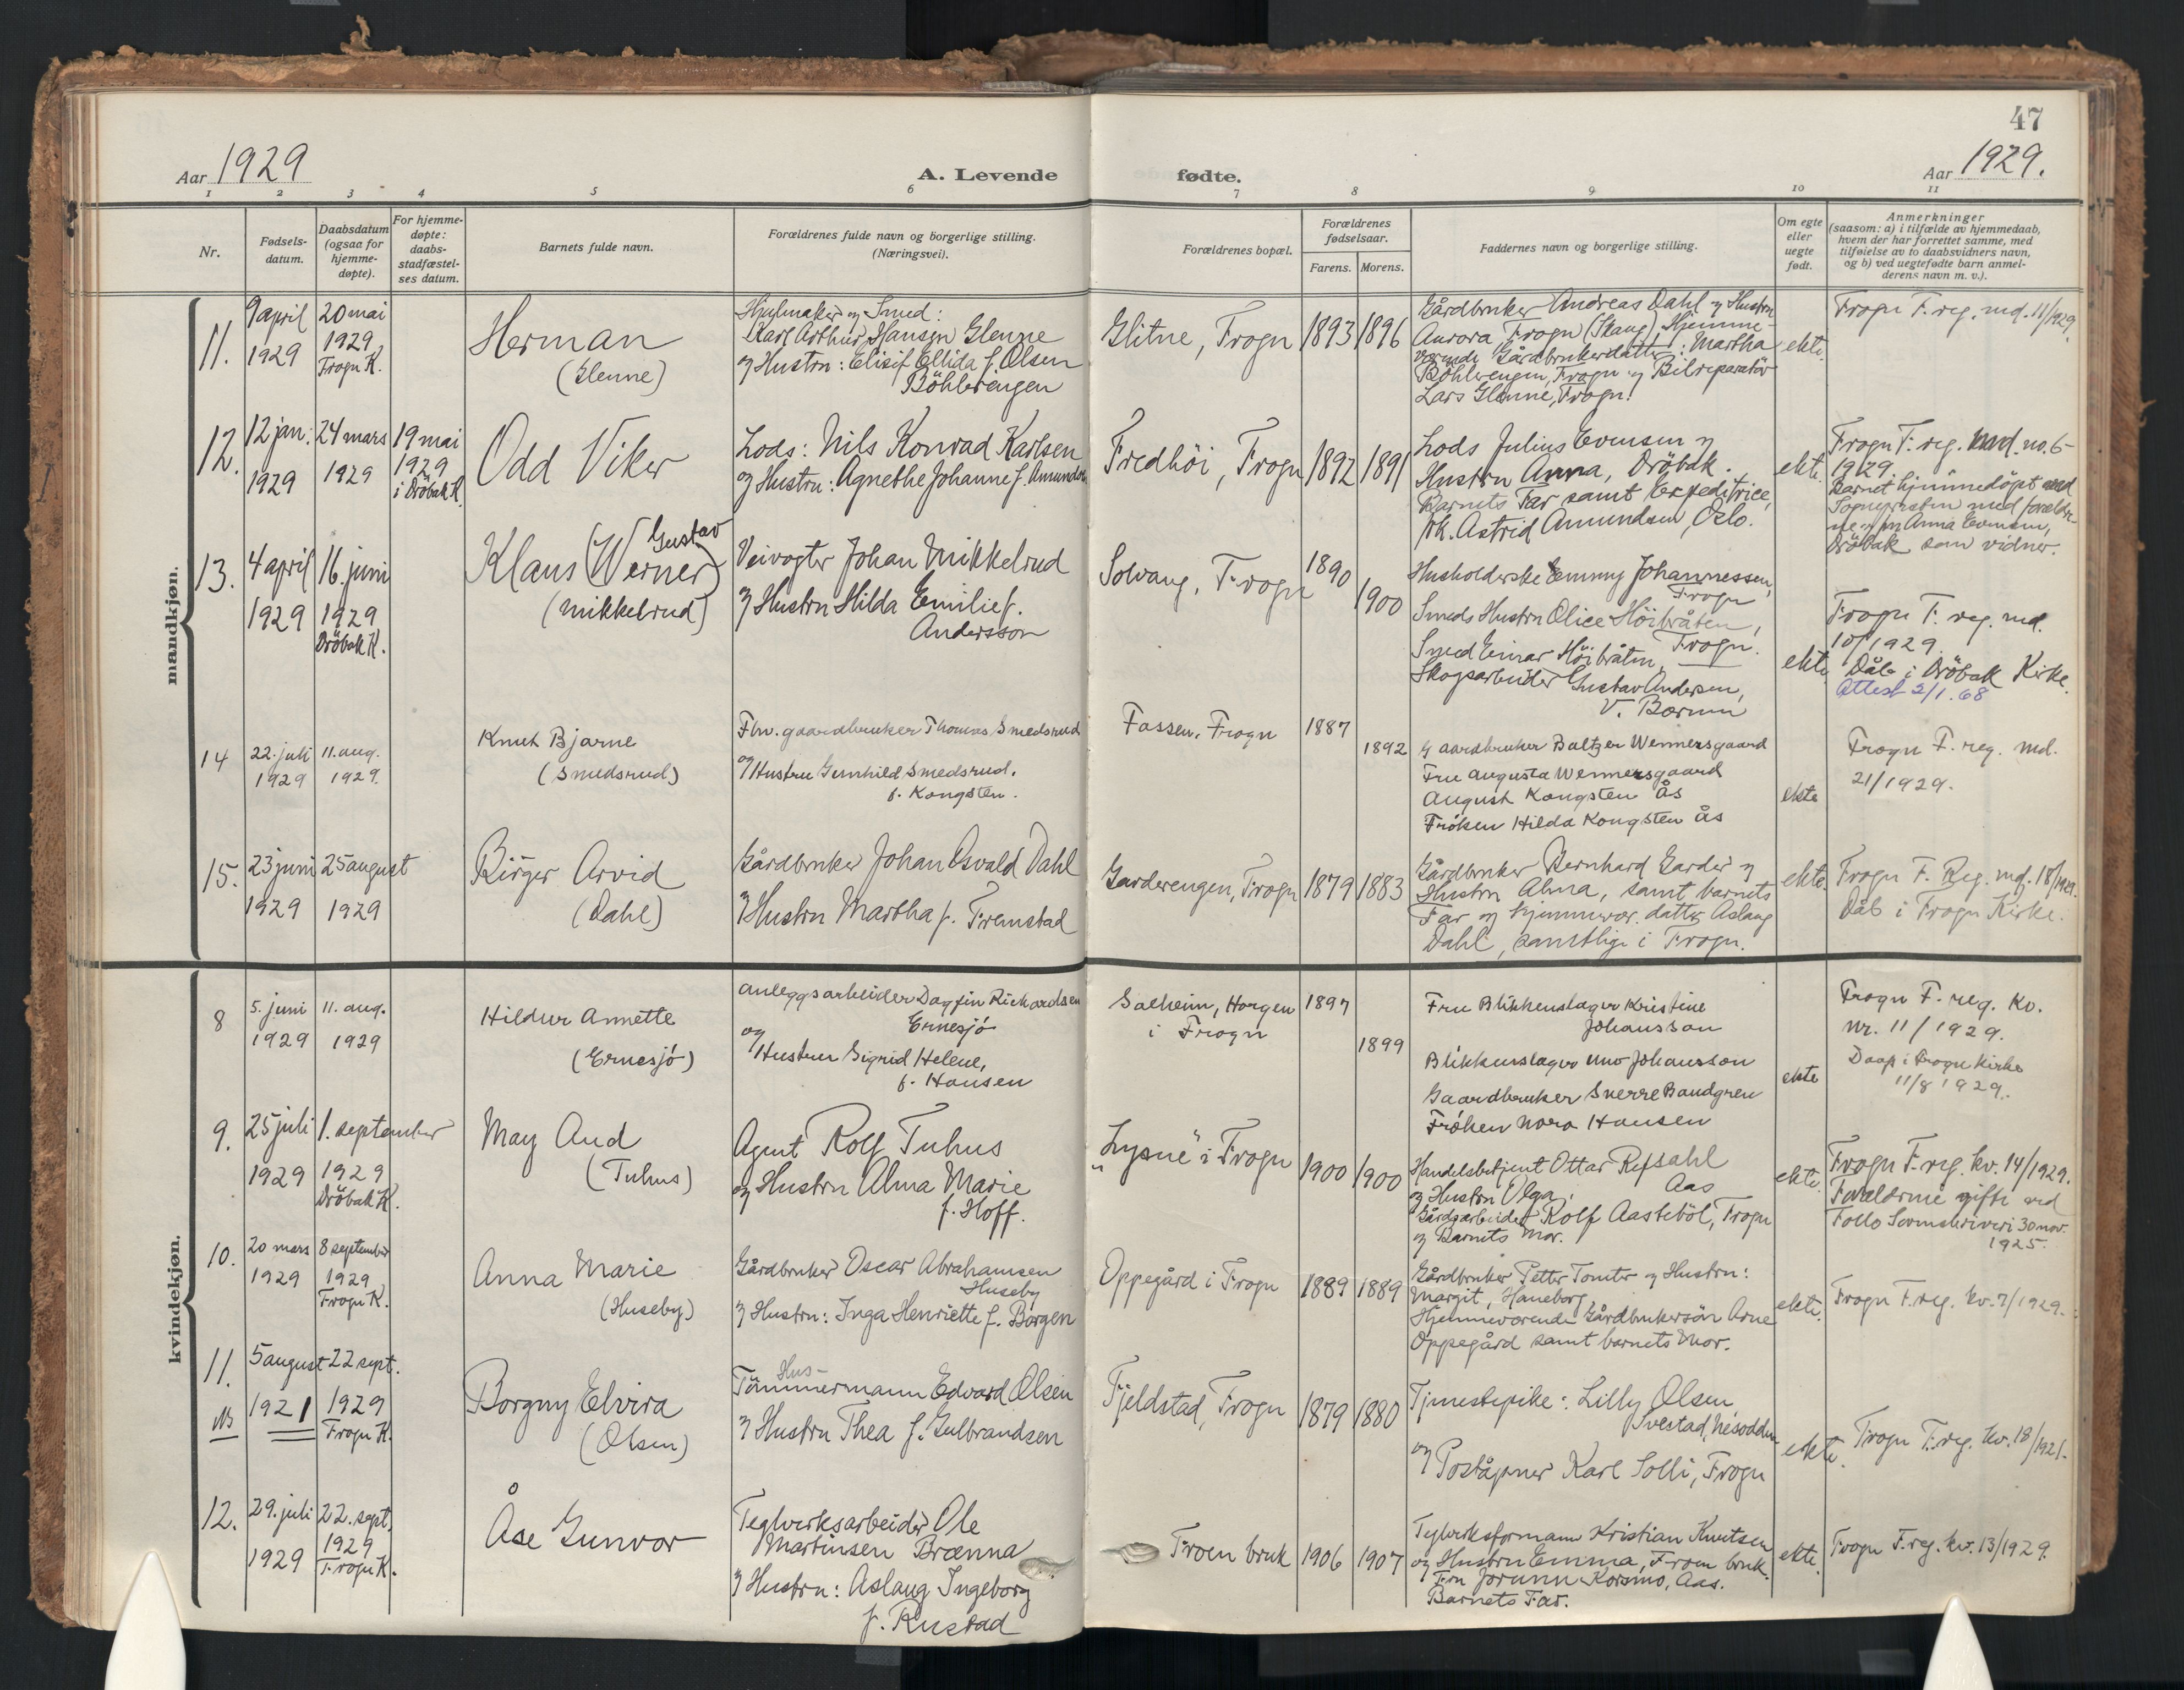 47
Aar 1929
A. Levende
fødte.
Aar 1929.
1 2 3 4 5 6 7 8 9 10 11
Nr.
Fødsels-
datum.
Daabsdatum
(ogsaa for
hjemme-
døpte).
For hjemme-
døpte:
daabs-
stadfæstel-
ses datum.
Barnets fulde navn.
Forældrenes fulde navn og borgerlige stilling.
(Næringsvei).
Forældrenes bopæl.
Forældrenes
fødselsaar.
Farens. Morens.
Faddernes navn og borgerlige stilling.
Om egte
eller
uegte
født.
Anmerkninger
(saasom: a) i tilfælde av hjemmedaab,
hvem der har forrettet samme, med
tilføielse av to daabsvidners navn,
og b) ved uegtefødte barn anmel-
derens navn m. v.).
mandkjøn.
11.
9 april
1929
20 mai
1929
Frogn K.
Herman
(Glenne)
Hjulmaker og Smed:
Karl Arthur Hansen Glenne
og Hustru: Elisif Ellida f. Olsen
Böhlerengen
Glitne, Frogn
1893 1896
Gårdbruker Andreas Dahl og Hustru
Aurora, Frogn (Skaug), Hjemme-
værende Gårdbrukerdatter: Martha
Böhlerengen, Frogn og Bilreparatör
Lars Glenne, Frogn.
ekte.
Frogn F. reg. md. 11/1929.
12.
12 jan.
1929
24 mars
1929
19 mai
1929
i Dröbak K.
Odd Viker
Lods: Nils Konrad Karlsen
og Hustru: Agnethe Johanne f. Amundsen
Fredhöi, Frogn
1892 1891
Lods Julius Evensen og
Hustru Anna, Dröbak.
Barnets Far samt Expeditrice,
frk. Astrid Amundsen, Oslo.
ekte.
Frogn F. reg. md. no. 6-
1929.
Barnet hjemmedöpt ved
Sognepresten med foreldre-
ne og fru Anna Evensen,
Dröbak som vidner.
13.
4 april
1929
16. juni
1929
Dröbak K.
Gustav
Klaus (Werner)
(Mikkelrud)
Veivogter Johan Mikkelrud
og Hustru Hilda Emilie f.
Andersson
Solvang, Frogn
1890
1900
Husholderske Emmy Johannessen,
Frogn
Smeds Hustru Olice Höibråten,
Frogn.
Smed Einar Höibråten,
Skogsarbeider Gustav Andersen,
V. Bærum
ekte.
Frogn F. reg. md.
10/1929.
Dåb i Dröbak Kirke.
Attest 2/1. 68
14
22. juli
1929
11. aug.
1929.
Knut Bjarne
(Smedsrud)
Fhv. gaardbruker Thomas Smedsrud
og Hustru Gunhild Smedsrud.
f. Kongsten.
Fossen, Frogn
1887
1892
Gaardbruker Baltzer Wennersgaard
Fru Augusta Wennersgaard
August Kongsten Ås
Fröken Hilda Kongsten Ås
ekte
Frogn F. reg. md.
21/1929.
15.
23 juni
1929
25 august
1929
Birger Arvid
(Dahl)
Gårdbruker Johan Osvald Dahl
og Hustru Martha f. Fremstad
Garderengen, Frogn
1879 1883
Gårdbruker Bernhard Garder og
Hustru Alma, samt barnets
Far og hjemmevær. datter Aslaug
Dahl, samtlige i Frogn.
ekte.
Frogn F. Reg. md. 18/1929.
Dåb i Frogn Kirke.
kvindekjøn.
8
5. juni
1929
11. aug.
1929
Hildur Annette
(Ernesjö)
Anleggsarbeider Dagfin Rickardsen
Ernesjö
og
Hustru Sigrid Helene,
f. Hansen
Solheim, Horgen
i Frogn
1897
1899
Fru Blikkenslager Kristine
Johansson
Blikkenslager Uno Johansson
Gaardbruker Sverre Bandgren
Fröken Nora Hansen
ekte
Frogn F. reg. Kv.
nr. 11/1929.
Daap i Frogn Kirke
11/8 1929.
9.
25 juli
1929
1. september
1929
Dröbak K.
May Aud
(Tuhus)
Agent Rolf Tuhus
og Hustru Alma Marie
f. Hoff.
"Lysne" i Frogn
1900 1900
Handelsbetjent Ottar Refsahl
Aas
og Hustru Olga,
Gårdsarbeider Rolf Aasteböl, Frogn
og Barnets Mor.
ekte.
Frogn F. reg. kv. 14/1929.
Forældrene gifte ved
Follo Sorenskriveri 30 nov.
1925.
10.
20 mars
1929
8 september
1929
Frogn K.
Anna Marie
(Huseby)
Gårdbruker Oscar Abrahamsen
Huseby
og Hustru: Inga Henriette f. Borgen
Oppegård i Frogn
1889 1889
Gårdbruker Petter Tomter og Hustru:
Margit, Haneborg.
Hjemmeværende Gårdbrukersön Arne
Oppegård samt barnets Mor.
ekte.
Frogn F. reg. kv. 7/1929.
11.
NB
5 august
1921
22 sept.
1929
Frogn K.
Borgny Elvira
(Olsen)
Hus-
Tömmermann Edvard Olsen
og Hustru Thea f. Gulbrandsen
Fjeldstad, Frogn
1879 1880
Tjenestepike: Lilly Olsen,
Svestad, Nesodden
og Poståpner Karl Solli, Frogn
ekte.
Frogn F. reg. kv. 18/1921.
12.
29. juli
1929
22. sept.
1929
Frogn K.
Åse Gunvor
Teglverksarbeider Ole
Martinsen Brænna
og Hustru: Aslaug Ingeborg
f. Rustad
Froen bruk
1906 1907
Teglverksformann Kristian Knutsen
og Hustru Emma, Froen bruk.
Fru Jorunn Korsmo, Aas.
Barnets Far.
ekte.
Frogn F. reg. kv. 13/1929.